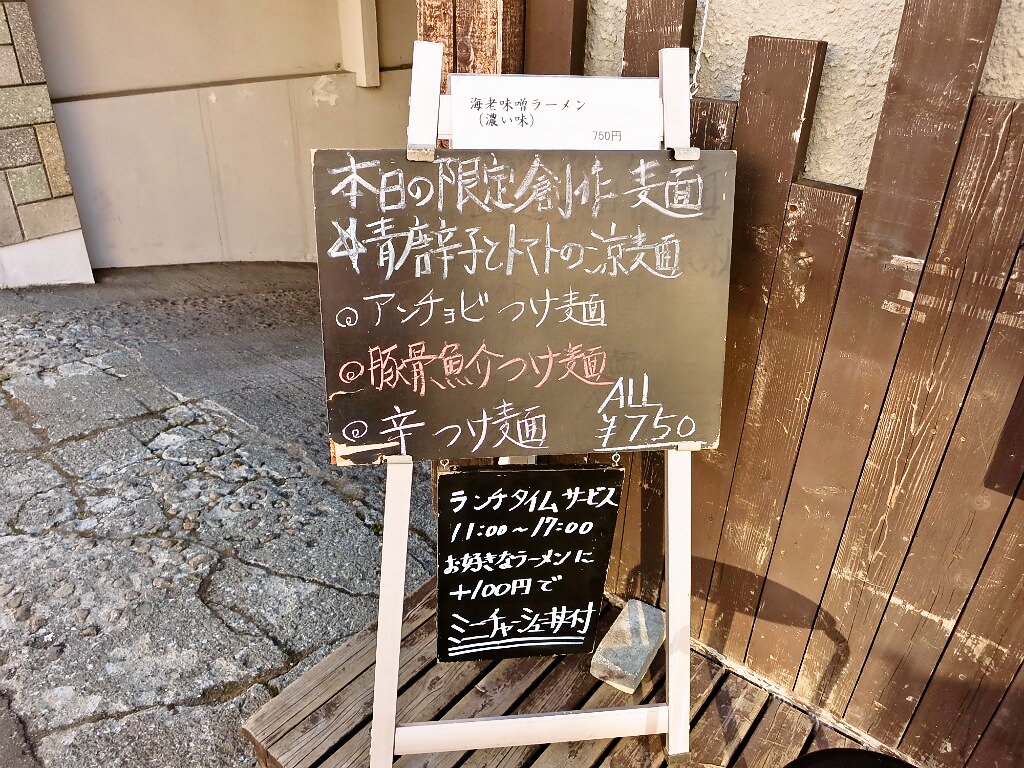 海老味噌ラーメン
(濃い味)
750円
本日の限定創作麦面
青唐辛子とトマトの涼麺
◎アンチョビつけ麺
◎豚骨魚介つけ麺
◎辛つけ麺
ALL
¥750
ランチタイムサービス
11:00~17:00
お好きなラーメンに
+100円で
ミニチャーシュー丼付